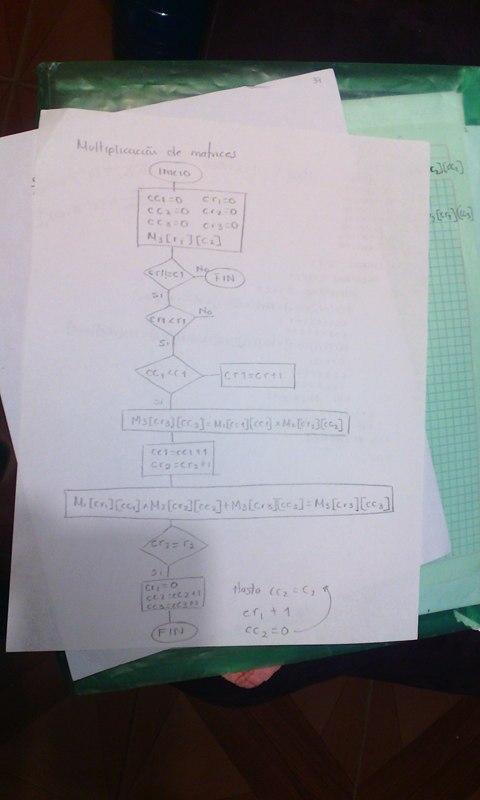 34
Multiplicación de matrices
INICIO
cc1=0 cr1=0
cc2=0 cr2=0
cc3=0 cr3=0
M3[r1][c2]
No
FIN
Si
No
Si
cc1<c1
cr1=cr1+1
Si
M3[cr3][cc3]=M1[cr1][cc1]×M2[cr2][cc2]
cc1=cc1+1
cr2=cr2+1
M1[cr1][cc1]×M2[cr2][cc2]+M3[cr3][cc3]=M3[cr3][cc3]
cr2=r2
Si
cr2=0
cc2=cc2+1
cc3=cc3+1
FIN
Hasta cc2=c2
cr1+1
cc2=0